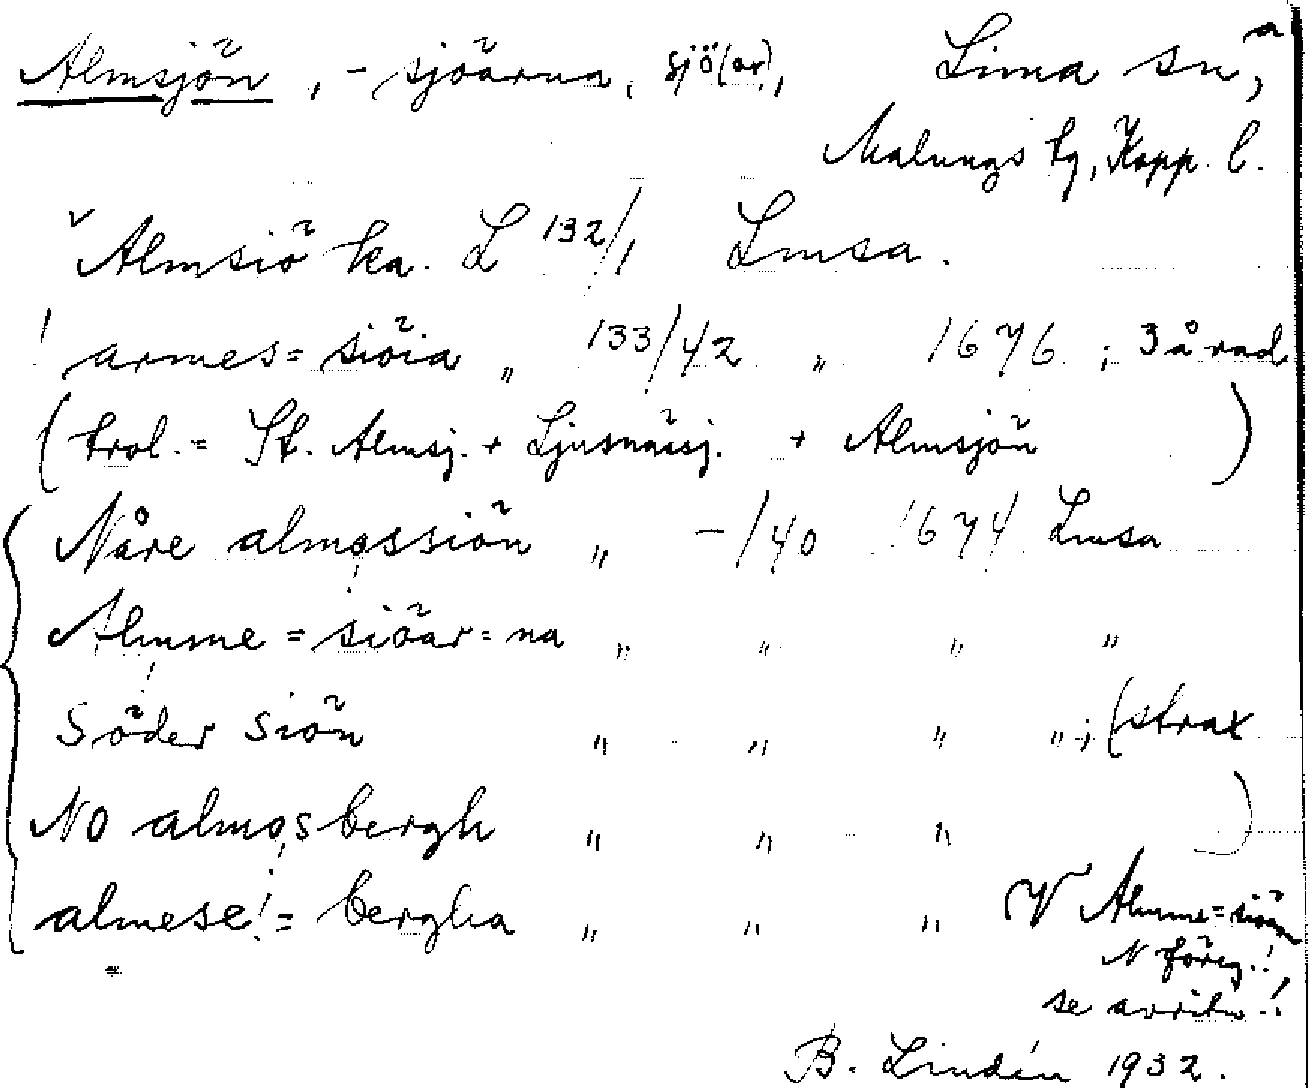 Almsjön, -sjöarna, sjö(ar), Lima sn,
Malungs tg, Kopp. l.
Almsiö ka. L 132/1 Lmsa.
! armes=siöia „ 133/42 „ 1676 ; 3 å rad
(trol. = St. Almsj. + Ljusnässj. + Almsjön)
Nåre almossiön „ -/40 1674 Lmsa
Almme=siöar=na „ „ „ „
Söder siön „ „ „ „ ; (strax
NO almosbergh „ „ „ )
almese!=bergha „ „ „ V Almme=siöar
N föreg.!
se avritn.!
B. Lindén 1932.